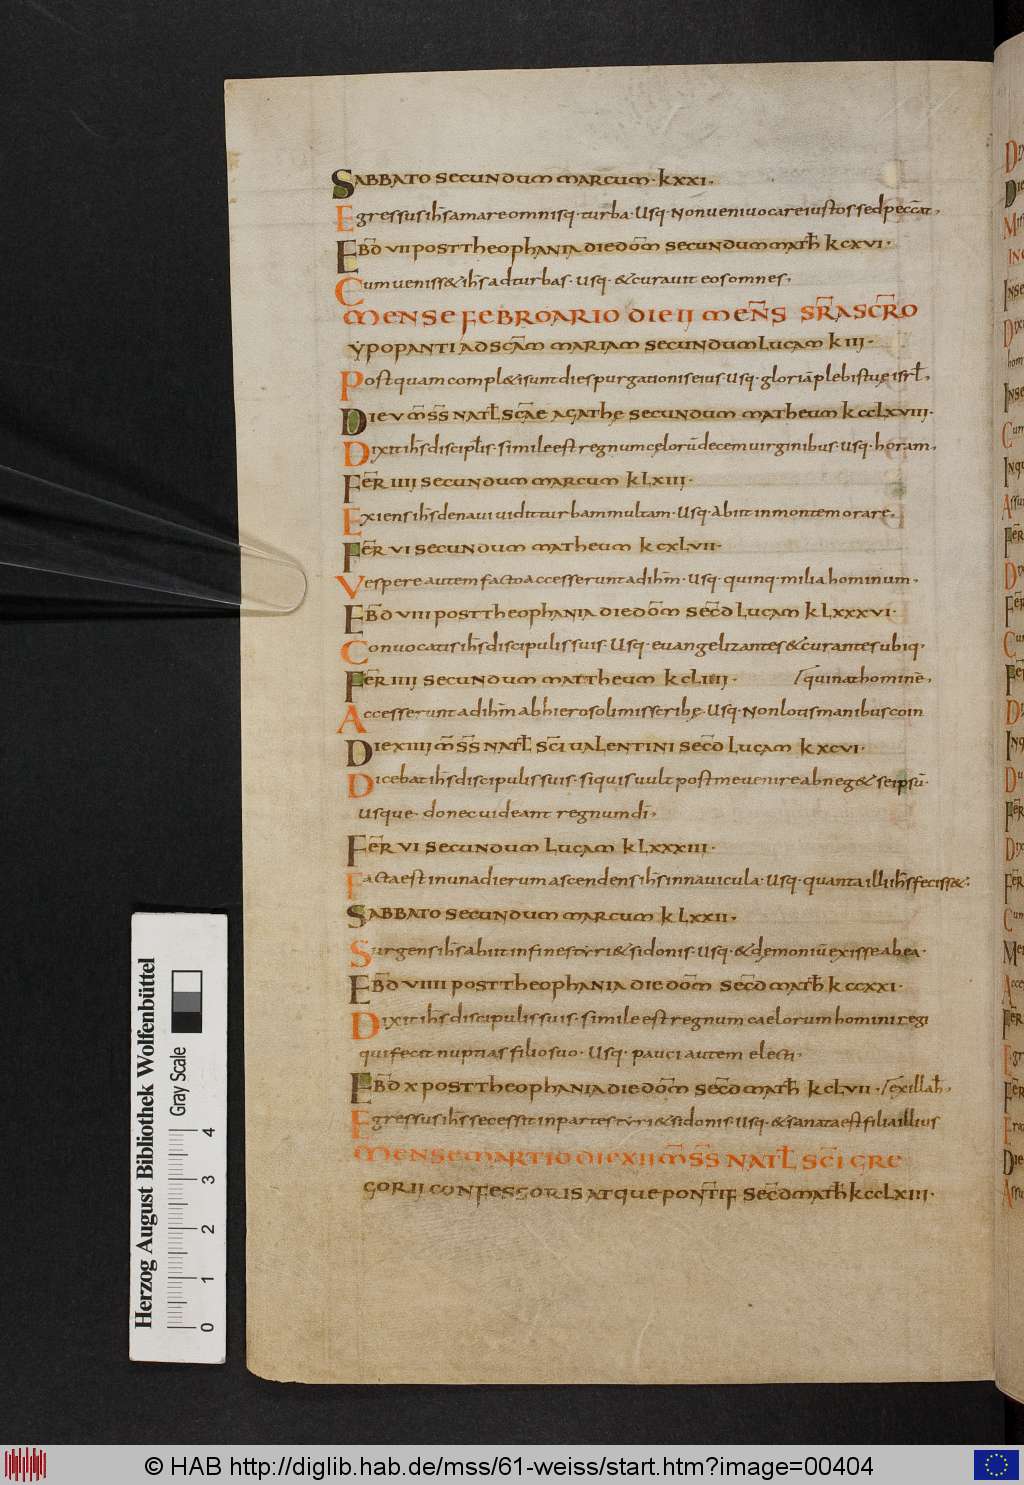 SABBATO SECUNDUM MARCUM · K XXXI ·
Egressus ih̄s amare omnisq· turba · Usq· Non veni vocare iustos sed peccat̄·
EB̄D VII POST THEOPHANIA DIE DŌM SECUNDUM MATH̄ K CXVI ·
Cum veniss& ih̄s ad turbas · Usq· & curavit eos omnes ·
MENSE FEBROARIO DIE II MEN̄S SR̄A SCR̄O
YPOPANTI AD SCĀM MARIAM SECUNDUM LUCAM K III ·
Postquam compl&i sunt dies purgationis eius · Usq· gloriā plebis tuę isrl̄·
DIE V M̄S̄S NATL̄ SC̄AE AGATHĘ SECUNDUM MATHEUM K CCLXVIII ·
Dixit ih̄s discipl̄is · simile est regnum cęlorū decem virginibus · Usq· horam ·
FER̄ IIII SECUNDUM MARCUM K LXIII ·
Exiens ih̄s de navi vidit turbam multam · Usq· Abiit in montem orare ·
FER̄ VI SECUNDUM MATHEUM K CXLVII ·
Vespere autem facto accesserunt ad ih̄m · Usq· quinq· milia hominum ·
EB̄D VIII POST THEOPHANIA DIE DŌM SEC̄D LUCAM K LXXXVI ·
Convocatis ih̄s discipulis suis · Usq· evangelizantes & curantes ubiq·
FER̄ IIII SECUNDUM MATTHEUM K CLIIII · /quinat hominē·
Accesserunt ad ih̄m ab hierosolimis scribę · Usq· Non lotis manibus coin
DIE XIIII M̄S̄S NATL̄ SC̄I VALENTINI SEC̄D LUCAM K XCVI ·
Dicebat ih̄s discipulis suis · si quis vult post me venire abneg& se ipsū ·
usque · donec videant regnum dī ·
FER̄ VI SECUNDUM LUCAM K LXXXIII ·
Facta est in una dierum ascendens ih̄s in navicula · Usq· quanta illi ih̄s feciss& ·
SABBATO SECUNDUM MARCUM K LXXII ·
Surgens ih̄s abiit in fines tyri & sidonis · Usq· & dęmoniū exisse ab ea ·
EB̄D VIIII POST THEOPHANIA DIE DŌM SEC̄D MATH̄ K CCXXI ·
Dixit ih̄s discipulis suis · simile est regnum caelorum homini regi
qui fecit nuptias filio suo · Usq· pauci autem electi ·
EB̄D X POST THEOPHANIA DIE DŌM SEC̄D MATH̄ K CLVII · /ex illa h̄ ·
Egressus ih̄s secessit in partes tyri & sidonis · Usq· & sanata est filia illius
MENSE MARTIO DIE XII M̄S̄S NATL̄ SC̄I GRE
GORII CONFESSORIS ATQUE PONTIF̄ SEC̄D MATH̄ K CCLXIII ·
Herzog August Bibliothek Wolfenbüttel
Gray Scale
0 1 2 3 4
© HAB http://diglib.hab.de/mss/61-weiss/start.htm?image=00404